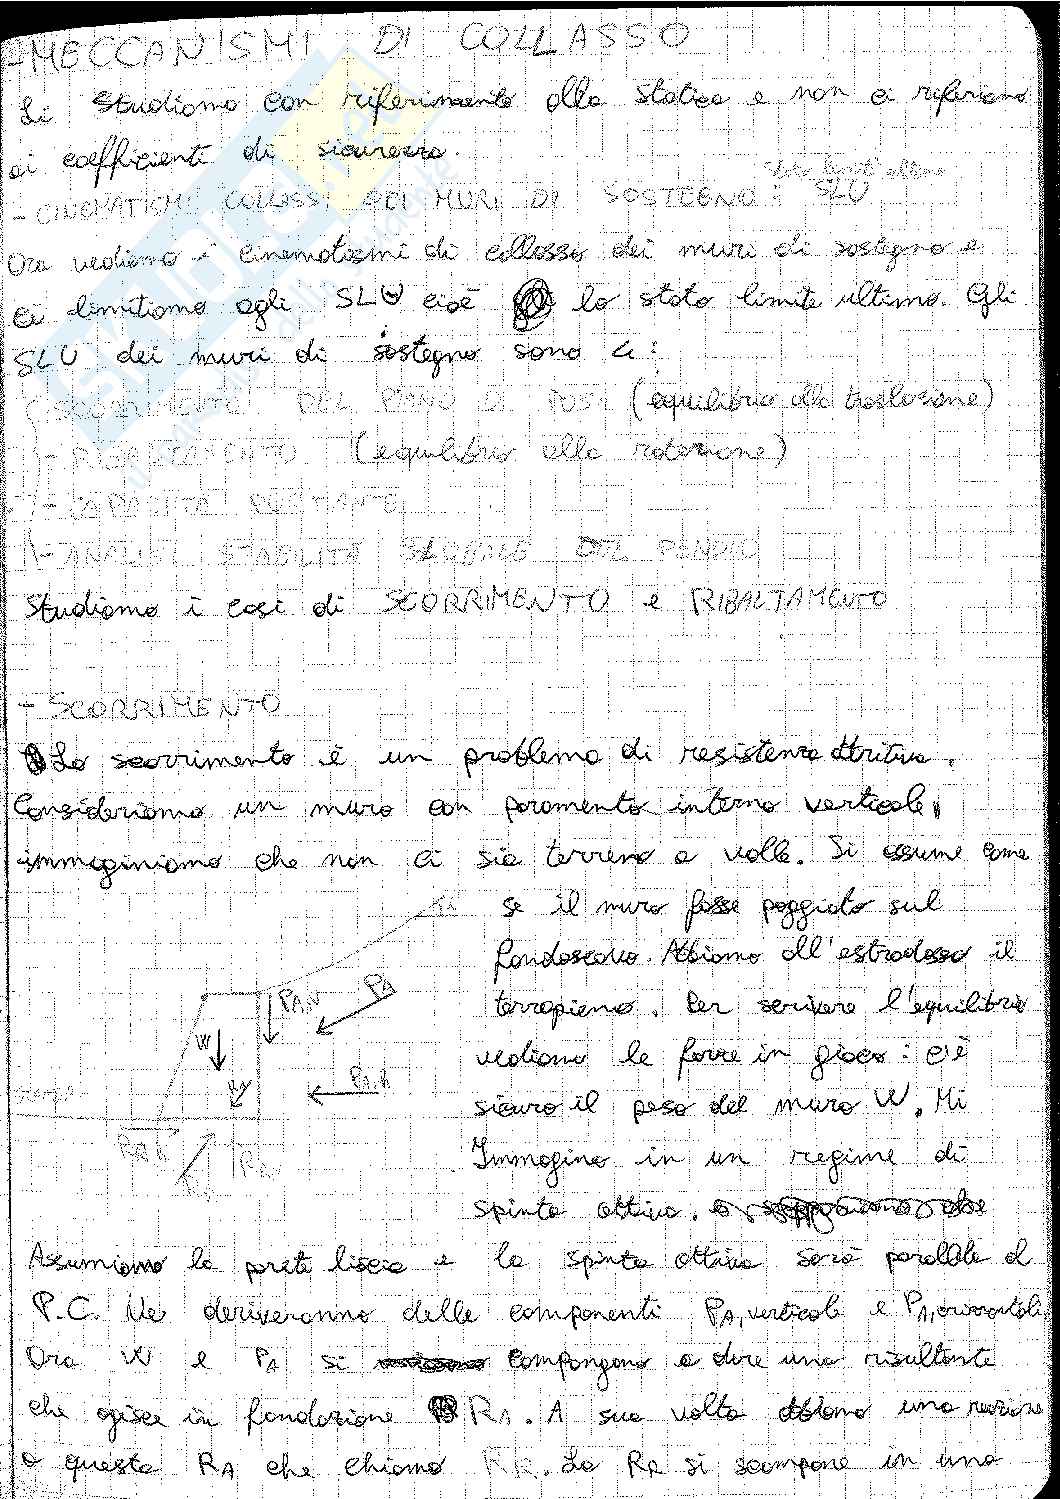 - MECCANISMI DI COLLASSO
Li studiamo con riferimento alla statica e non ci riferiamo
ai coefficienti di sicurezza.
Stato limite ultimo
- CINEMATISMI COLLASSI DEI MURI DI SOSTEGNO: SLU
Ora vediamo i cinematismi di collasso dei muri di sostegno e
ci limitiamo agli SLU cioè lo stato limite ultimo. Gli
SLU dei muri di sostegno sono 4:
- SCORRIMENTO DEL PIANO DI POSA (equilibrio alla traslazione)
- RIBALTAMENTO (equilibrio alla rotazione)
- CAPACITÀ PORTANTE
- ANALISI STABILITÀ GLOBALE DEL PENDIO
Studiamo i casi di SCORRIMENTO e RIBALTAMENTO
- SCORRIMENTO
Lo scorrimento è un problema di resistenza attritiva.
Consideriamo un muro con paramento interno verticale,
immaginiamo che non ci sia terreno a valle. Si assume come
se il muro fosse poggiato sul
fondoscavo. Abbiamo all'estradosso il
terrapieno. Per scrivere l'equilibrio
vediamo le forze in gioco: c'è
sicuro il peso del muro W. Mi
Immagino in un regime di
spinta attiva.
PA,V
PA
W
PA,h
RA
RR,h
RR
Assumiamo la parete liscia e la spinta attiva sarà parallela al
P.C. Ne deriveranno delle componenti PA,verticale e PA,orizzontale.
Ora W e PA si compongono a dare una risultante
che agisce in fondazione RA. A sua volta abbiamo una reazione
a questa RA che chiamo RR. La RR si scompone in una